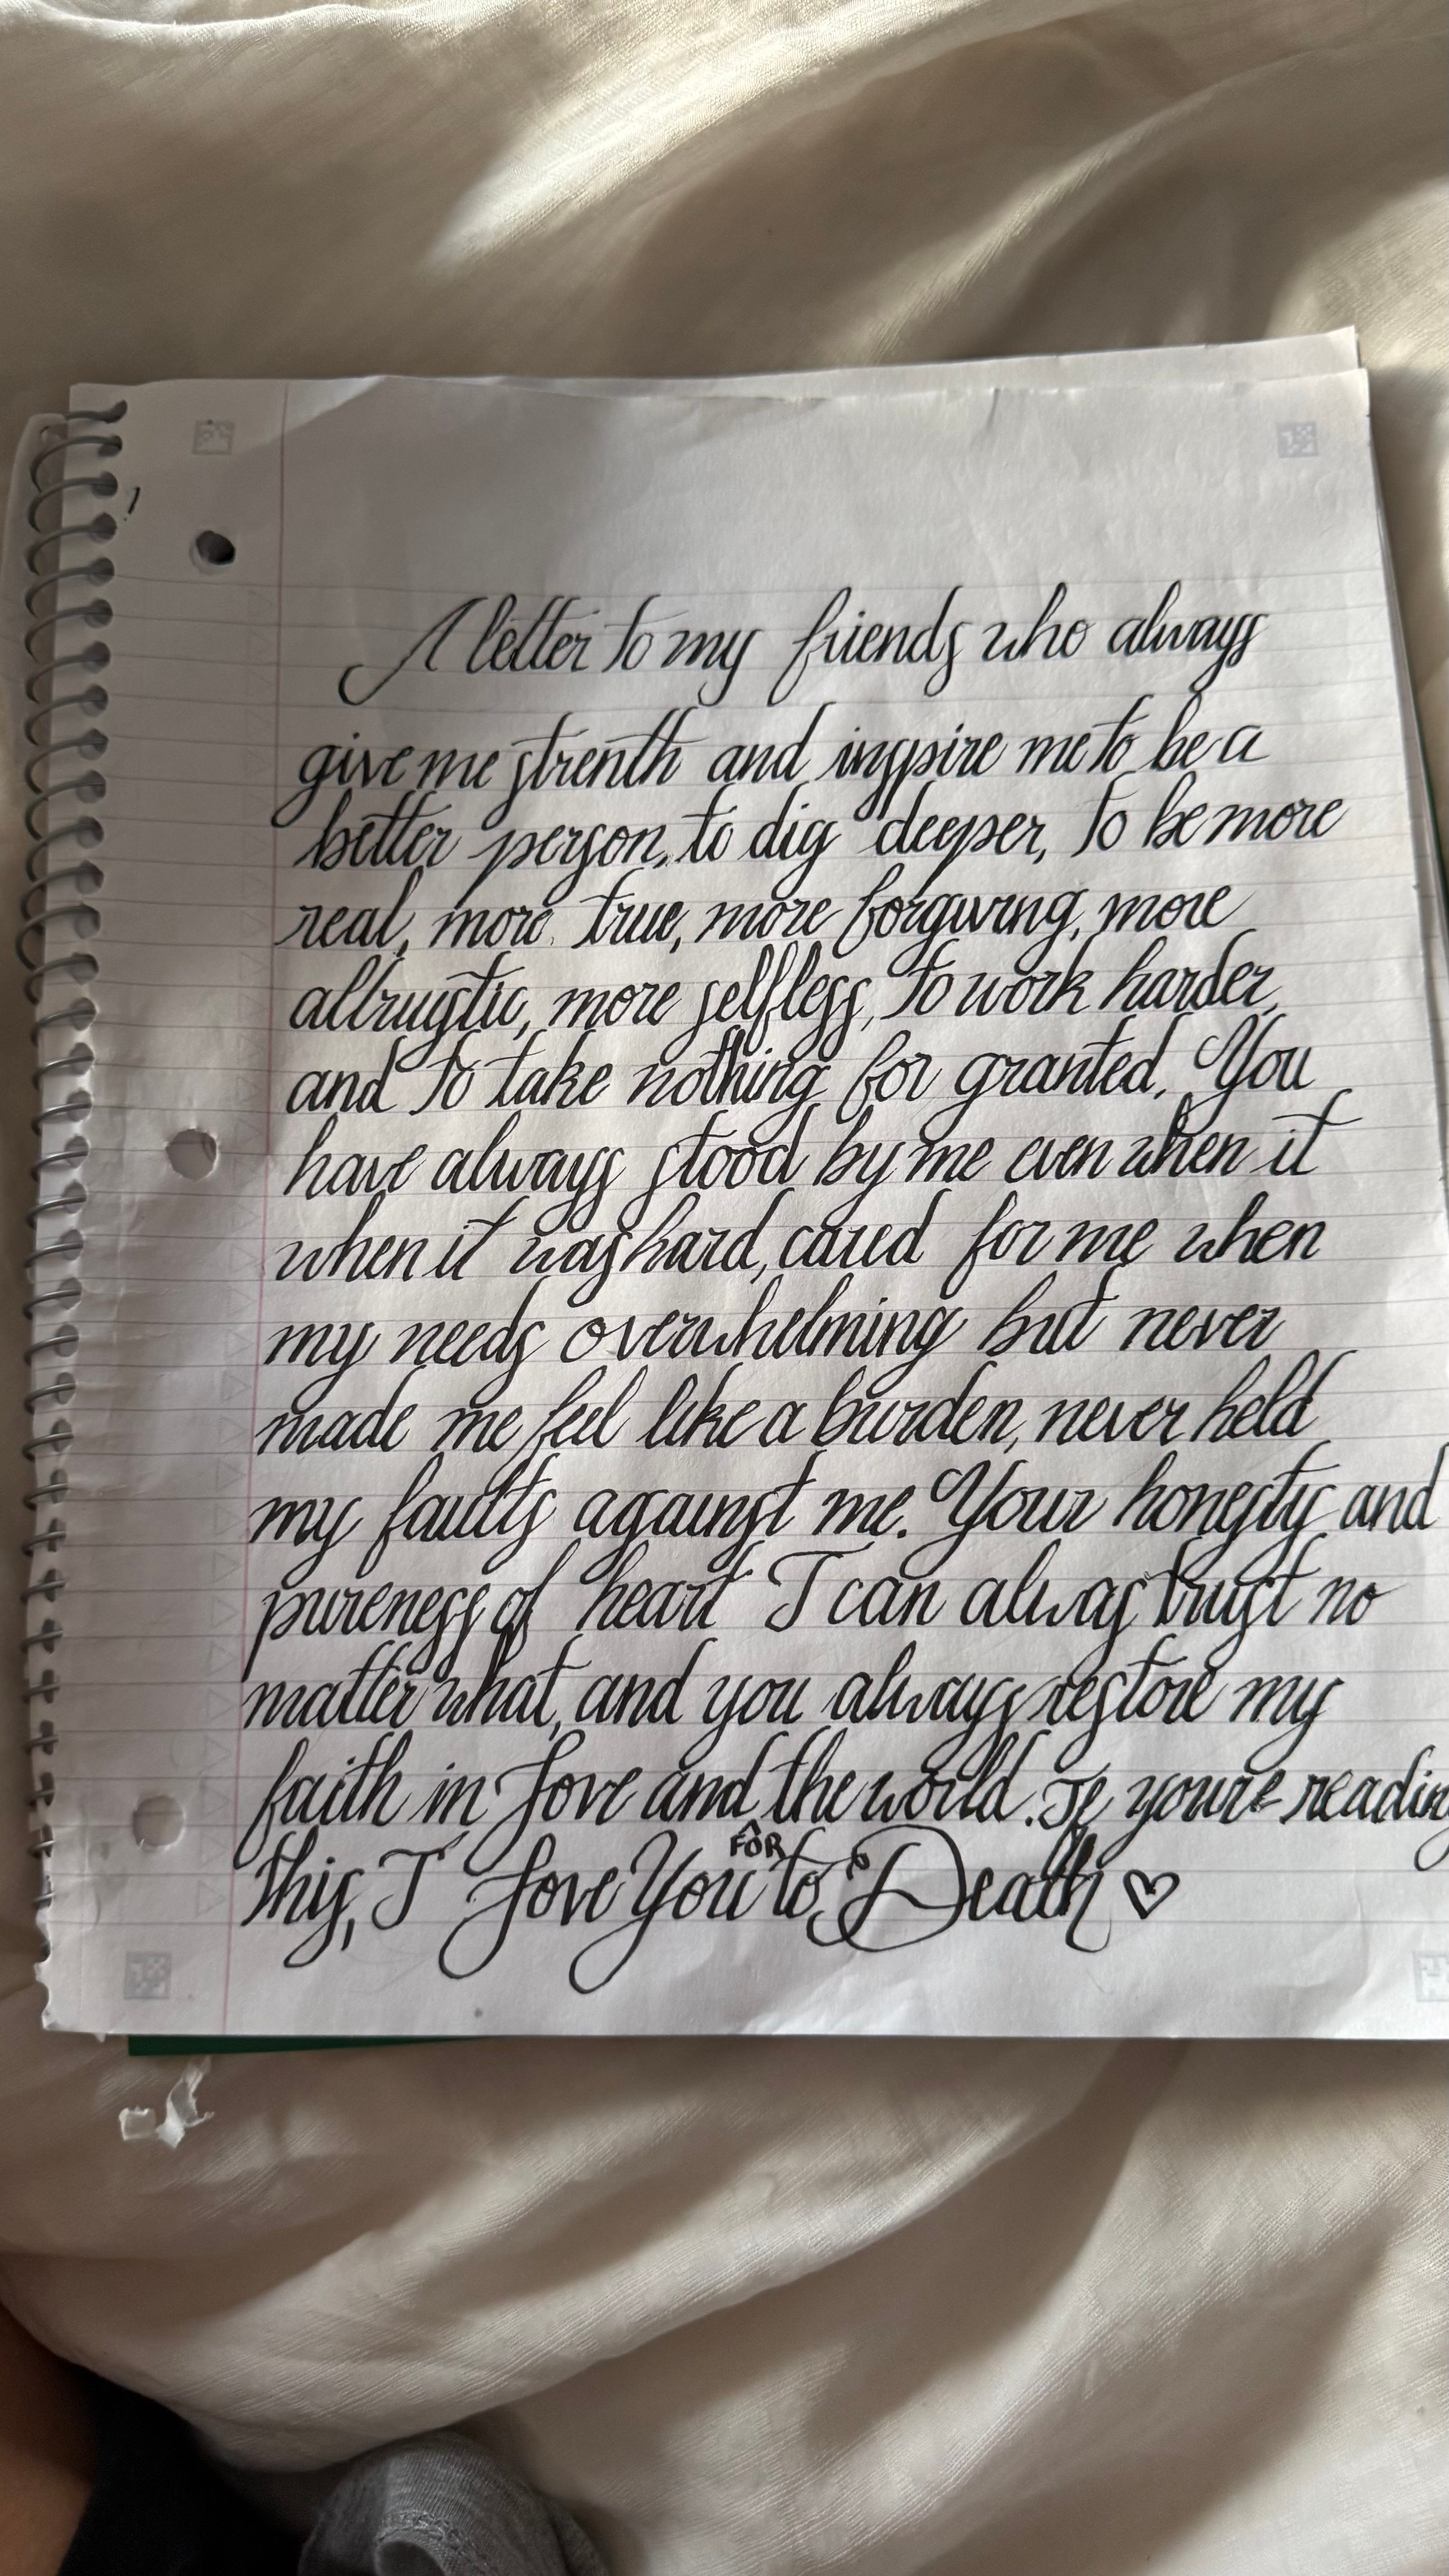 A letter to my friends who always
give me strenth and inspire me to be a
better person, to dig deeper, to be more
real, more true, more forgiving, more
altruistic, more selfless, to work harder,
and to take nothing for granted. You
have always stood by me even when it
when it was hard, cared for me when
my needs overwhelming but never
made me feel like a burden, never held
my faults against me. Your honesty and
pureness of heart I can alwas trust no
matter what, and you always restore my
faith in Love and the world. If you're reading
FOR
this, I Love You to Death ♡